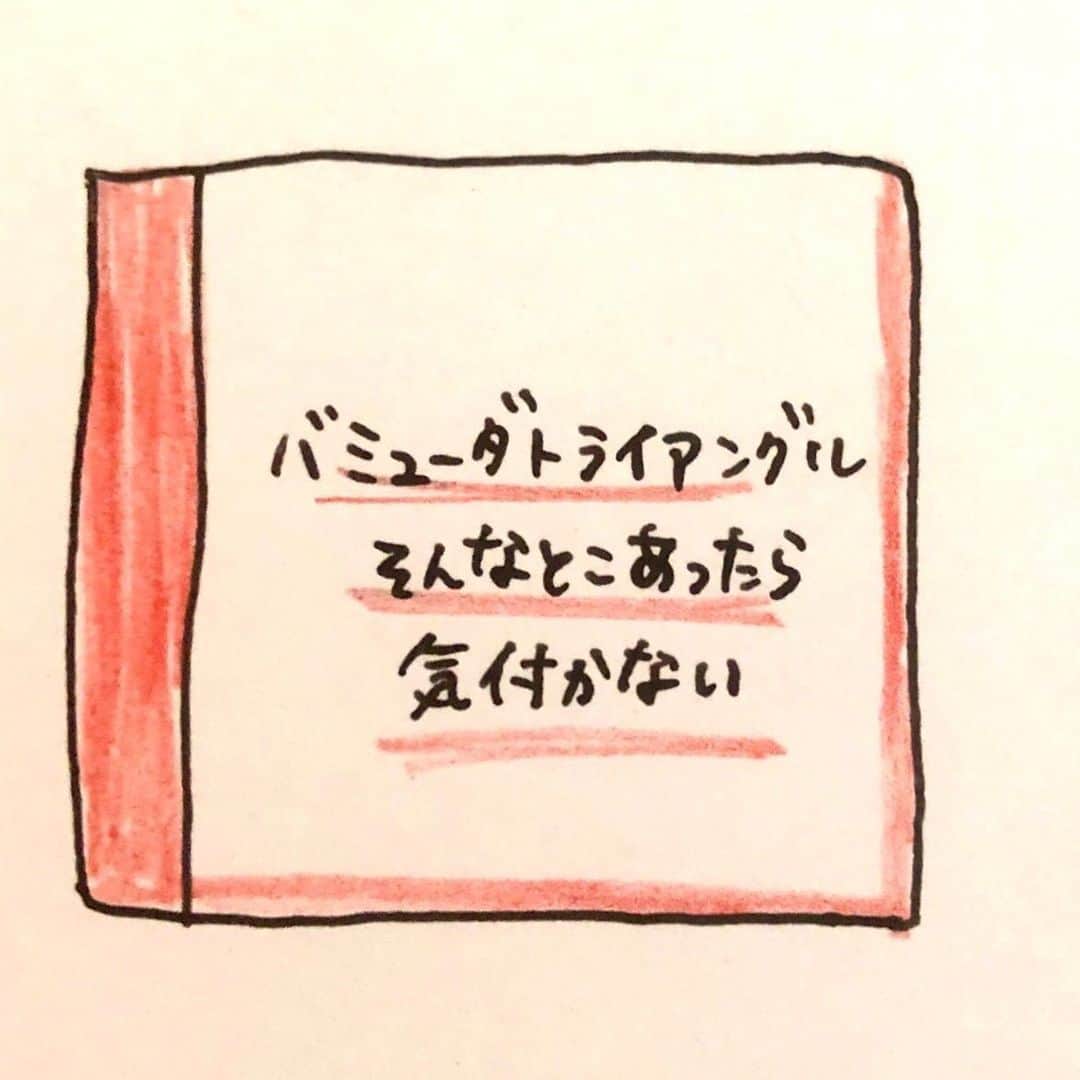 バミューダトライアングル
そんなとこあったら
気付かない